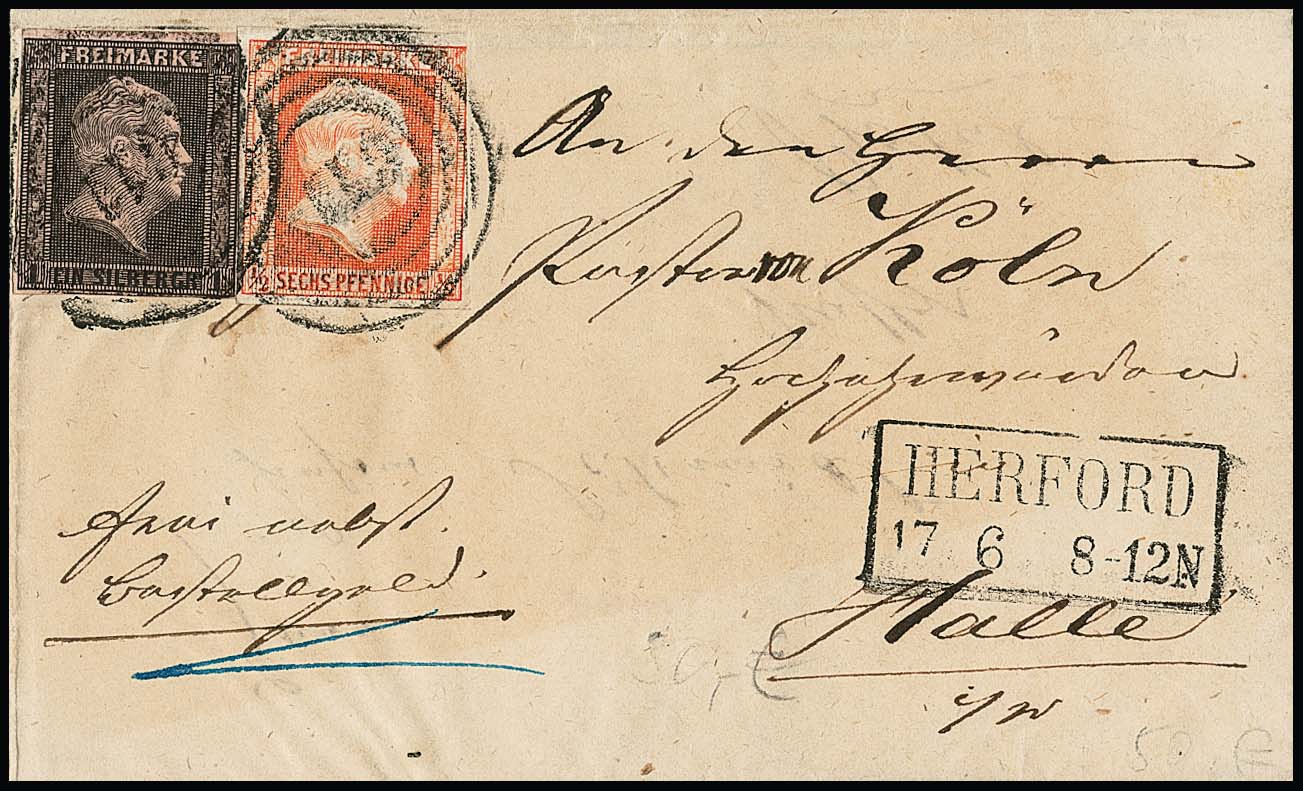 FREIMARKE
EIN SILBERGR.
FREIMARKE
½ SECHS PFENNIGE ½
An den Herrn
Pastor Köln
Hochehrwürden
HERFORD
17 6 8-12N
Halle
i/W
frei nebst
Bestellgeld.